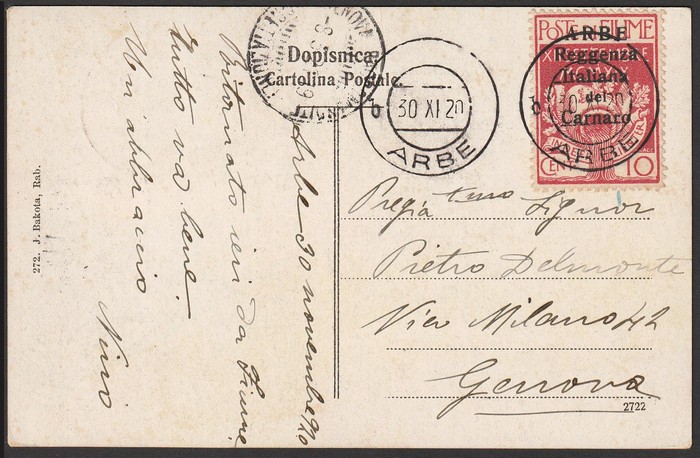 Dopisnica
Cartolina Postale
GENOVA
30 XI 20
b
ARBE
POSTE DI FIUME
ARBE
Reggenza
Italiana
del
Carnaro
b
ARBE
CENT 10
Arbe 30 novembre 920
Ritornato ieri da Fiume,
tutto va bene.
Un abbraccio
Nino
Pregia tmo Signor
Pietro Delmonte
Via Milano 42
Genova
272. J. Bakota, Rab.
2722